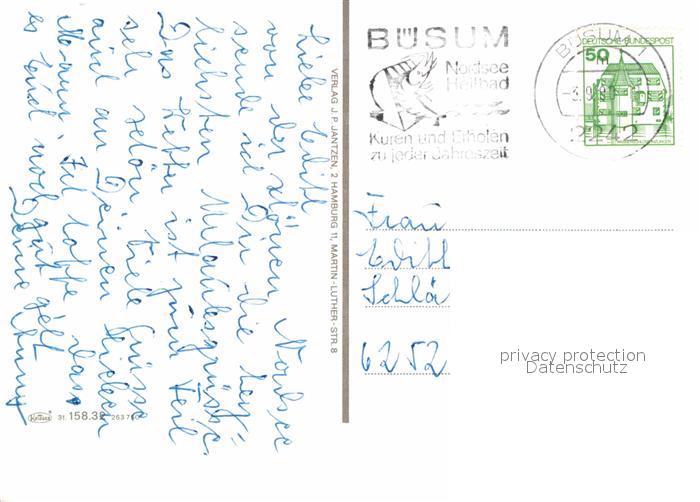 Liebe Edith
von der schönen Nordsee
sende ich Dir die herz-
lichsten Urlaubsgrüße.
Das Wetter ist zum Teil
sehr schön. Viele Grüße
auch an Deinen lieben
Mann. Ich hoffe, dass
es Euch noch gut geht
Deine
VERLAG J. P. JANTZEN, 2 HAMBURG 11, MARTIN-LUTHER-STR. 8
31. 158.32
BÜSUM
Nordsee
Heilbad
Kuren und Erholen
zu jeder Jahreszeit
BÜSUM 1
2242
50
DEUTSCHE BUNDESPOST
Frau
Edith
Schlä
6252
privacy protection
Datenschutz